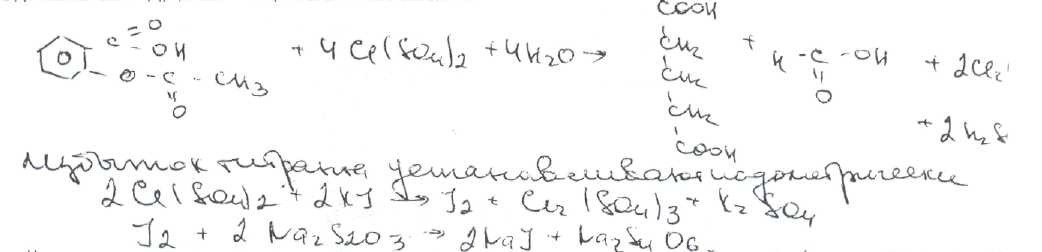 COOH
C=O OH + 4Ce(SO4)2 + 4H2O → CH2 + H-C-OH + 2Ce2
O-C-CH3 CH2 O
O CH2 + 2H2S
COOH
избыток титранта устанавливают иодометрически
2Ce(SO4)2 + 2KJ → J2 + Ce2(SO4)3 + K2SO4
J2 + 2Na2S2O3 → 2NaJ + Na2S4O6